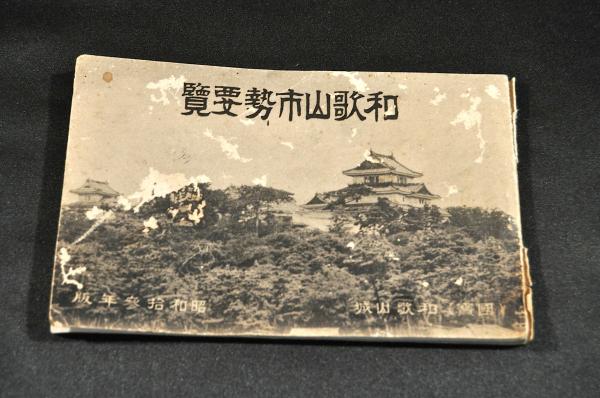 和歌山市勢要覽
（國寶）和歌山城
昭和拾參年版